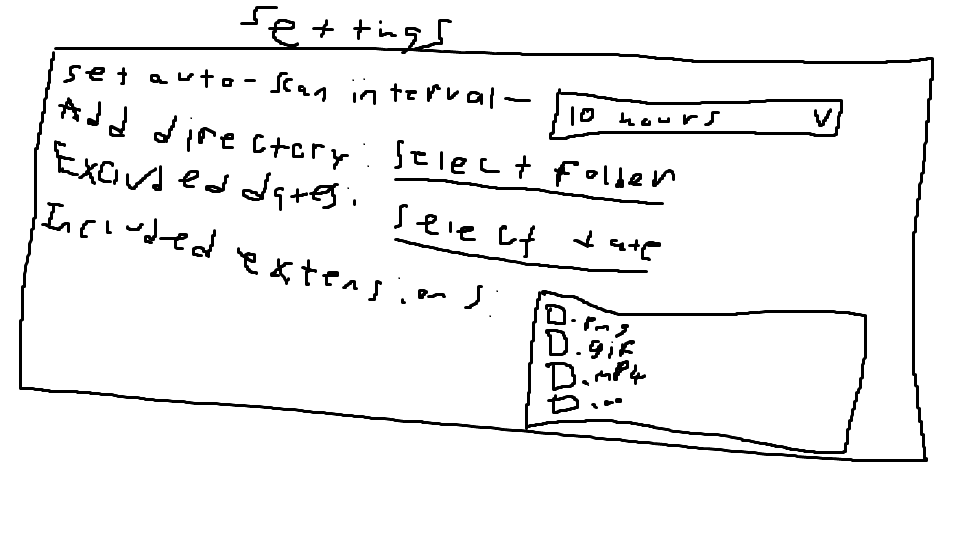 Settings
set auto-scan interval- 10 hours V
Add directory: Select Folder
Excluded dates: Select date
Included extensions:
.png
.gif
.mp4
...